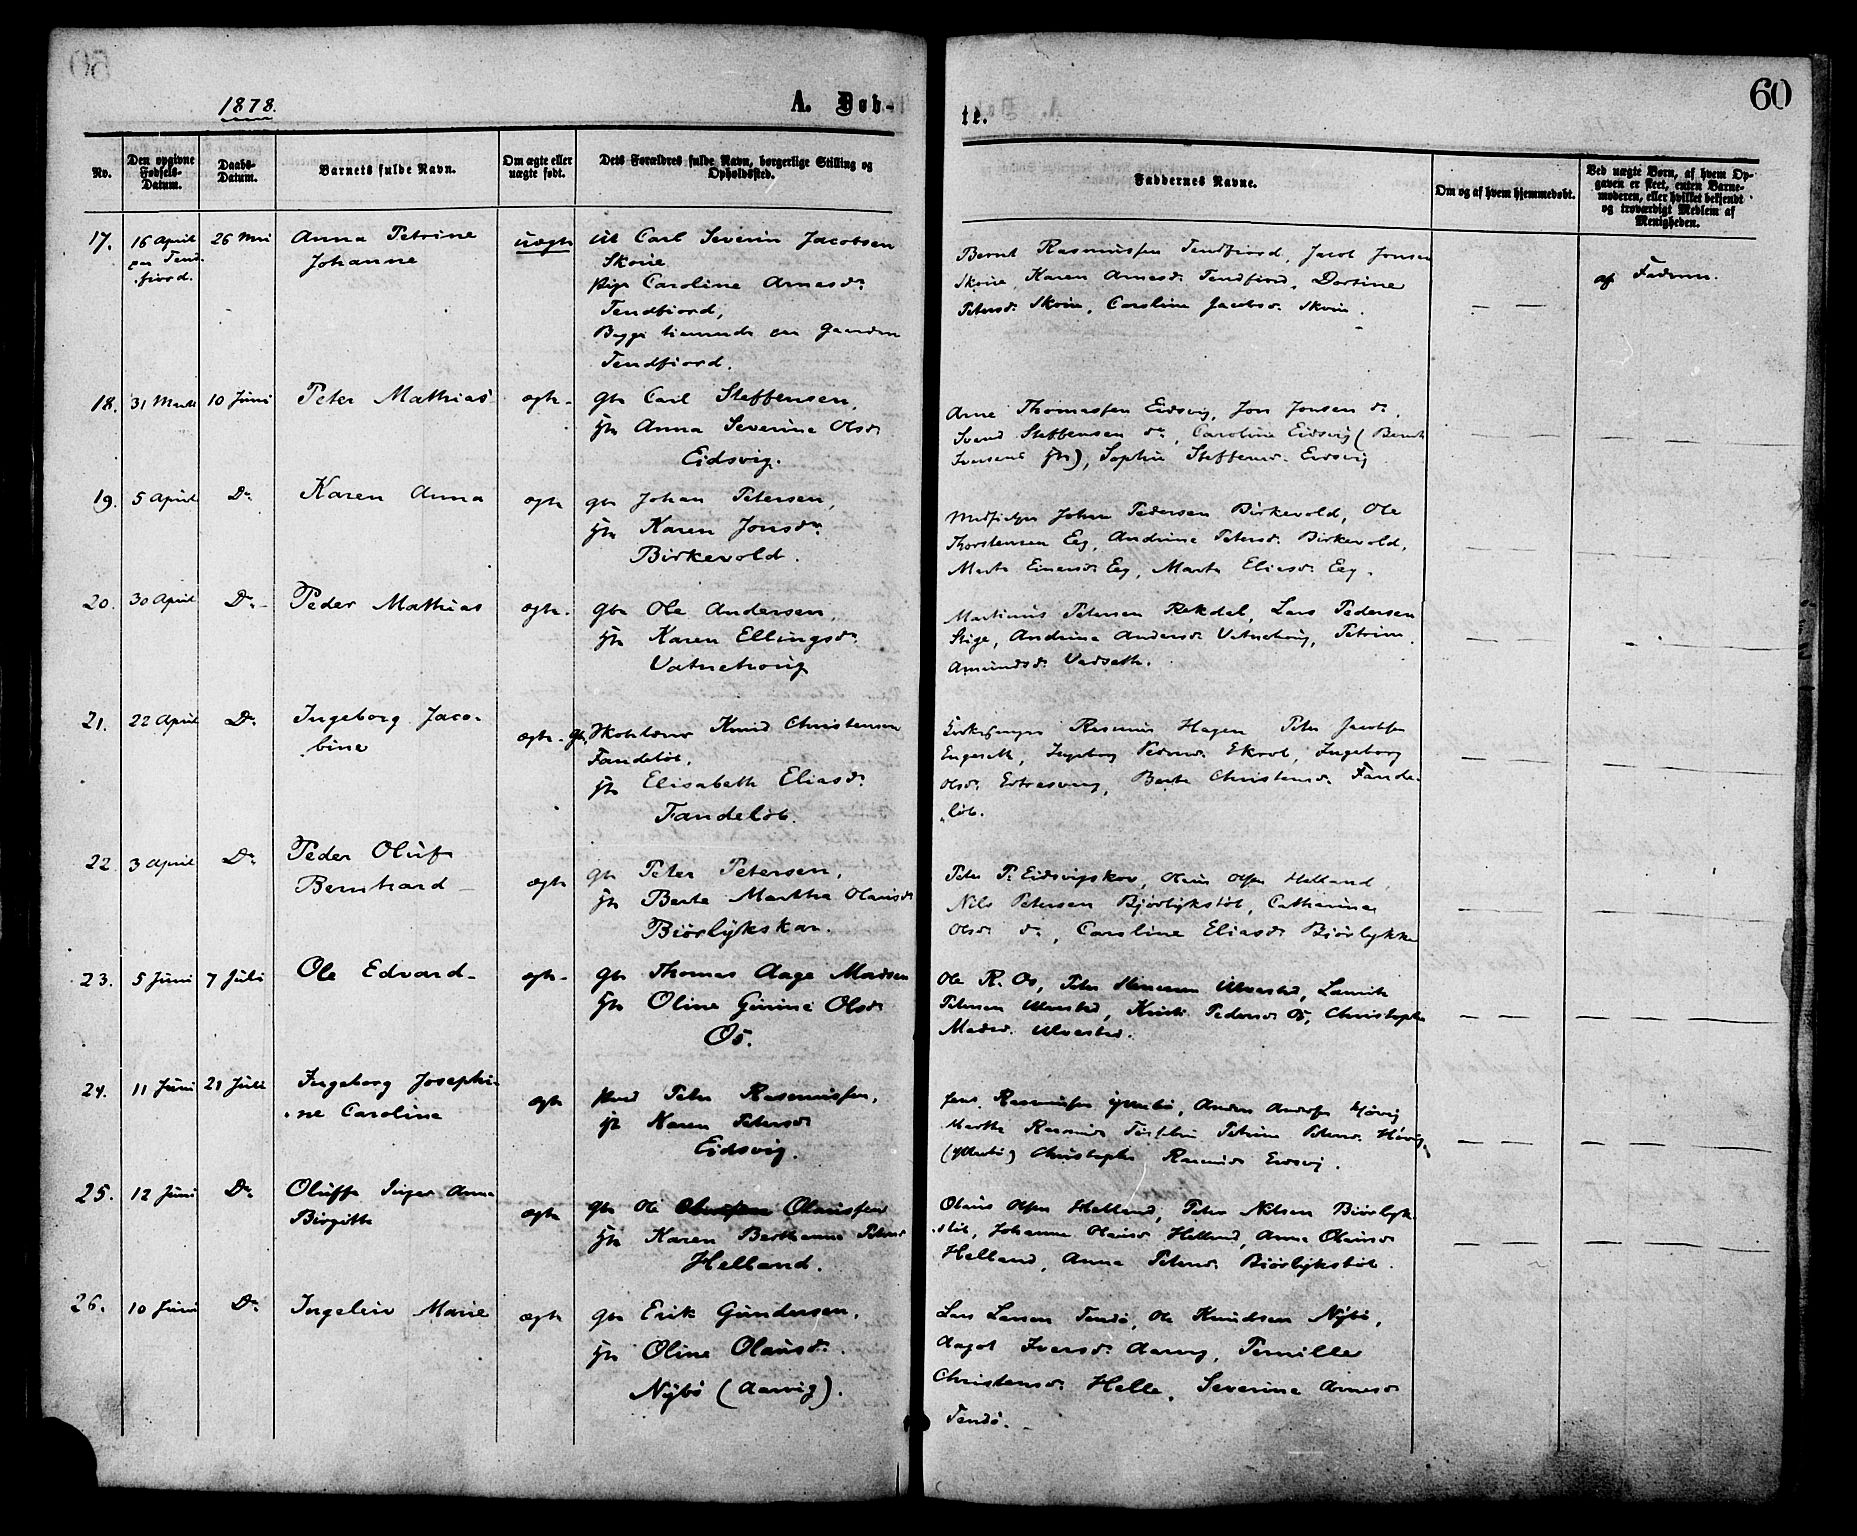 1878.
A. Døb-
te.
60
No.
Den opgivne Fødsels-Datum.
Daabs-Datum.
Barnets fulde Navn.
Om ægte eller uægte født.
Dets Forældres fulde Navn, borgerlige Stilling og Opholdssted.
Faddernes Navne.
Om og af hvem hjemmedøbt.
Ved uægte Børn, af hvem Op-
gaven er skeet, enten Barne-
moderen, eller hvilket bekjendt
og troværdigt Medlem af
Menigheden.
17. 16 April 26 Mai Anna Petrine uægte Carl Severin Jacobsen
paa Tend- Johanne Skorie
fjord. pige Caroline Arnesdr
Tendfjord,
Begge tienende paa Gaarden
Tendfjord.
Bernt Rasmussen Tendfjord, Jacob Jonsen
Karen Arnesdr Tendfiord, Dortine
Petersdr Caroline Jacobsdr
af Faderen.
18. 31 Marts 10 Juni Peter Mathias ægte gbr Carl Steffensen,
Anna Severine Olsdr
Eidsvig.
Arne Thomassen Eidsvig, Jon Jonsen do,
Svend Steffensen do, Caroline Eidsvig (Bernt
Iversens ), Sophie Steffensdr Eidsvig
19. 5 April Do Karen Anna ægte gbr Johan Petersen,
Karen Jonsdr
Birkevold.
Johan Pedersen Birkevold, Ole
Thorstensen Eeg, Andrine Petersdr Birkevold,
Marte Einersdr Eeg, Marte Eliasdr Eeg.
20. 30 April Do Peder Mathias ægte gbr Ole Andersen,
Karen Ellingsdr
Vatnehoug
Martinus Petersen Rekdal, Lars Pedersen
Stige, Andrine Andersdr Vatnehoug, Petrine
Amundsdr Vadseth.
21. 22 April Do Ingeborg Jaco- ægte gbr, Skolelærer Knud Christensen
bine Fandeløb,
Elisabeth Eliasdr
Fandeløb.
Kirkesanger Rasmus Hagen Peter Jacobsen
Engeseth, Ingeborg Ekrol, Ingeborg
Olsdr Berte Christensdr Fande-
løb.
22 3 April Do Peder Oluf ægte gbr Peter Petersen,
Bernhard Berte Martha Olausdr
Biørlykskar.
Peter P. Eidsvigskov, Olaus Olsen Helland,
Nils Petersen Bjørlykstøl, Catharina
Olsdr do, Caroline Eliasdr Bjørlykke
23. 5 Juni 7 Juli Ole Edvard ægte gbr Thomas Aage Madsen
Oline Gurine Olsdr
Øs.
Ole R. Øs, Peter Ulvestad, Laurits
Petersen Ulvestad, Kristi Pedersdr Øs, Christophe
Madsd. Ulvestad.
24. 11 Juni 21 Juli Ingeborg Josephi- ægte Peter Rasmussen,
ne Caroline Karen Petersdr
Eidsvig.
Jens Rasmussen Anders Andersen
Marthe Petrine Petersdr
Christophe Rasmusdr Eidsvig.
25. 12 Juni Do Oluffe Inger Anna ægte gbr Ole Olaussen
Birgitte Karen Berthanne Petersdr
Helland.
Olaus Olsen Helland, Peter Nilsen Biørlyk-
støl, Johanne Olausdr Helland, Anna Olausdr
Helland, Anna Petersdr Biørlykstøl.
26. 10 Juni Do Ingeleiv Marie ægte gbr Erik Gundersen,
Oline Olausdr
Nybø (Aarvig).
Lars Larsen Tendø, Ole Knudsen Nybø,
Aagot Iversdr Pernille
Christensdr Helle, Severine Arnesdr
Tendø.